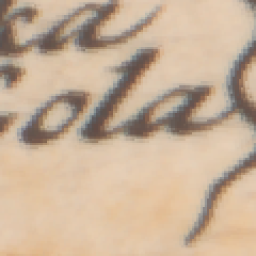 ka
Cola